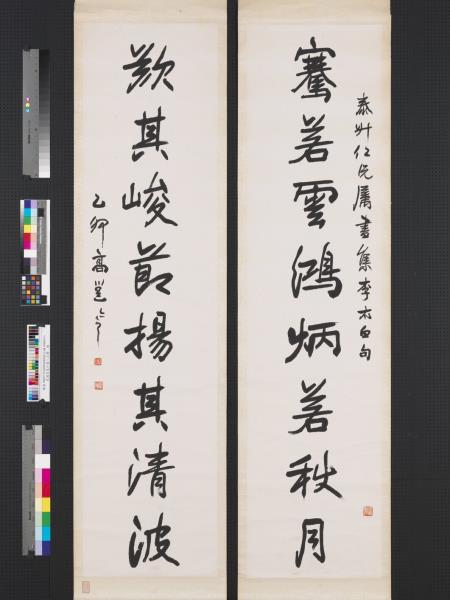 泰州仁兄屬書集李太白句
騫若雲鴻炳若秋月
歎其峻節揚其清波
乙卯高邕